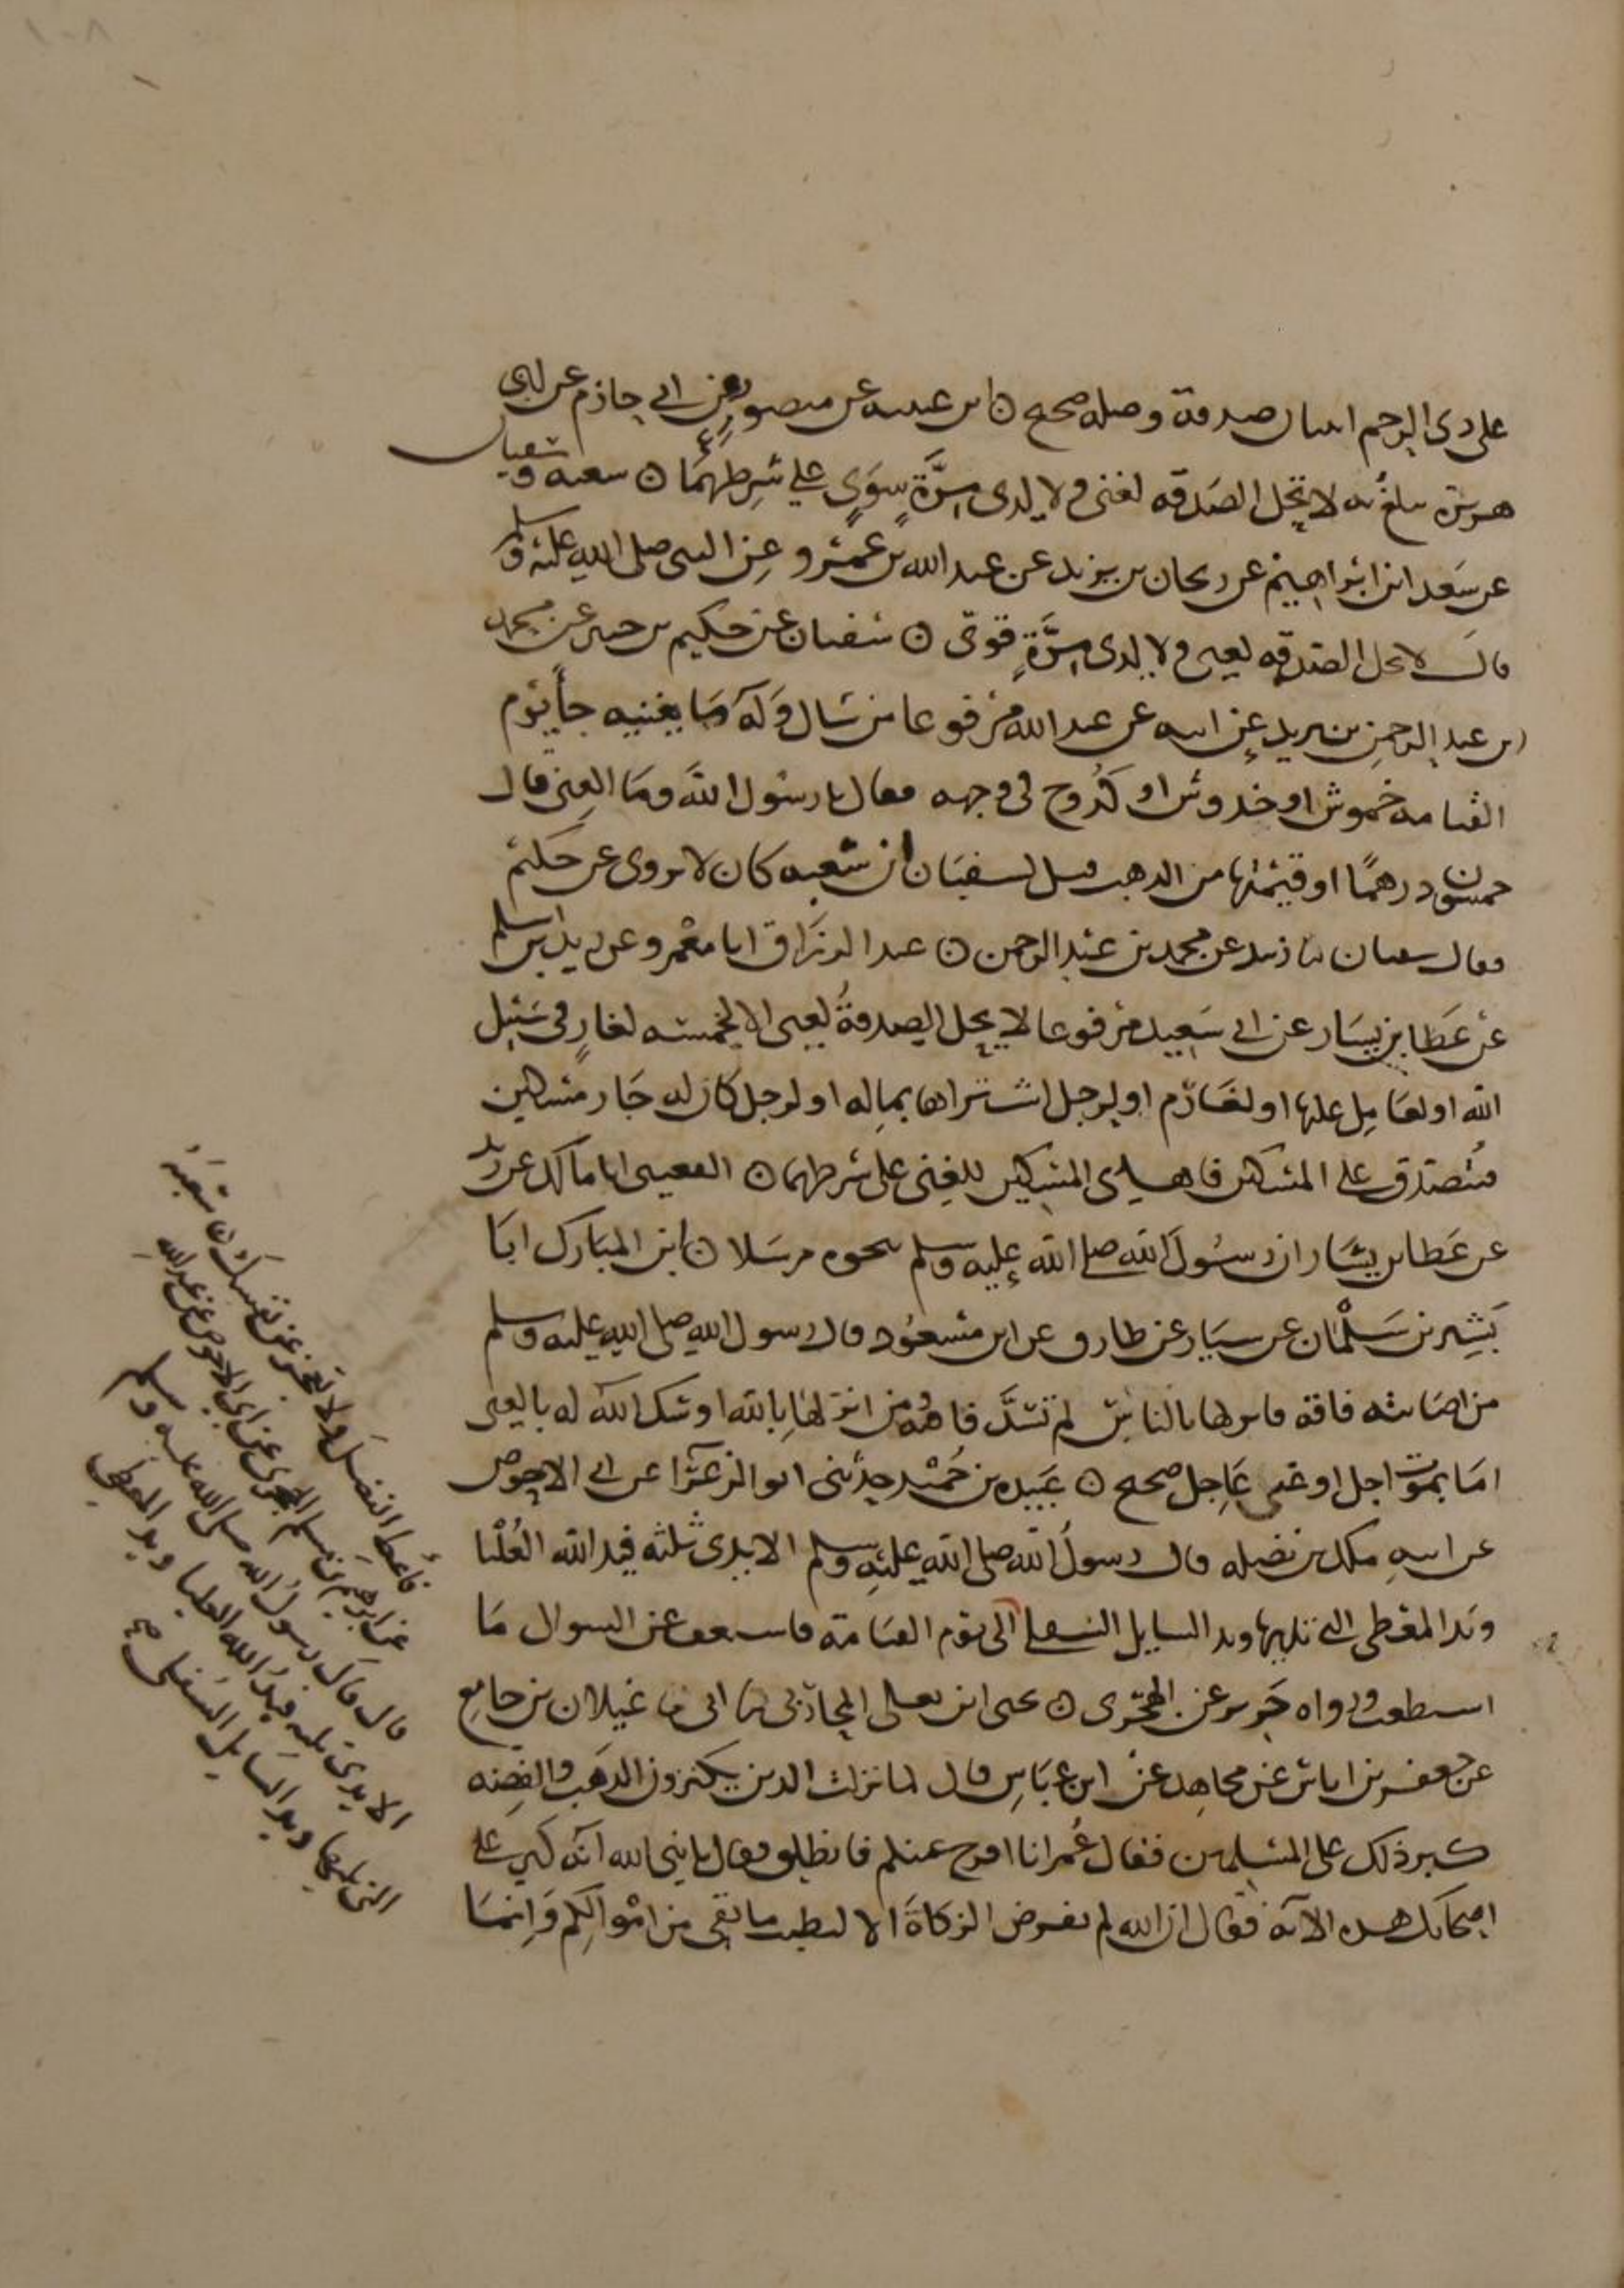 على ذى الرحم اثنتان صدقة وصلة صحيح ○ ابن عيينه عن منصور عن ابى حازم عن ابى
هريرة يبلغ به لا تحل الصدقه لغنى ولا لذى مِرَّةٍ سَوِىٍ على شرطهمَا ○ شعبه وسفيان
عن سَعد ابن ابراهيم عن ريحان بن يزيد عن عبد الله بن عمرو عن النبى صلى الله عليه وسلم
قال لا تحل الصدقه لغنى ولا لذى مِرَّةٍ قوىّ ○ سفيان عن حكيم بن جبير عن محمد
بن عبد الرحمن بن يزيد عن ابيه عن عبد الله مرفوعا من سَال وَله مَا يغنيه جأ يوم
القيامه خموش او خدوش او كُدُوح فى وجهه فقال يا رسول الله ومَا الغنى قال
خمسون درهمًا او قيمتها من الذهب قيل لسفيَان ان شعبه كان لا يروى عن حكيم
فقال سفيان ثنا زبيد عن محمد بن عبد الرحمن ○ عبد الرزاق انا معْمر وعن زيد بن اسلم
عن عَطا بن يسَار عن ابى سَعِيد مرفوعا لا تحل الصدقةُ لغنى الا لخمسه لغازٍ فى سَبيل
الله او لعَامِل عليها او لغَارم او لرجل اشتراها بمالِه او لرجل كان له جَار مسكين
فتُصدّق على المسكين فاهدى المسكين للغنى على شرطهما ○ القعنبى انا مالك عن زيد
عن عَطا بن يسَار ان رسُول الله صلى الله عليه وسلم بنحوه مرسَلا ○ ابن المبَارك انبَا
بَشِير بن سَلْمان عن سيَار عن طارق عن ابن مسعُود قال رسول الله صلى الله عليه وسلم
من اصَابته فاقه فانزلها بالناسِ لم تسَدَّ فاقتُه ومن انزلهَا بالله اوشك الله له بالغنى
امَا بموت اجل او غنى عَاجِل صحيح ○ عَبيده بن حُمَيْد حدثنى ابو الزعرَا عن ابى الاحوص
عن ابيهِ ملك بن نضله قال رسولُ الله صلى الله عليْهِ وسلم الايدى ثلثه فيَد الله العُلْيا
ويَد المعْطى التى تليها ويد السايل السفلى الى يوم القيَامة فاستعف عن السوال مَا
استطعت ورواه جَرير عن الهجَرى ○ يحيى ابن يعلى المحاربى ثنا ابى ثنا غيلان بن جامِع
عن جعفر بن اياس عن مجاهِد عن ابن عَبَاسِ قال لما نزلت الذين يكنزون الذهَب والفِضه
كبر ذلك على المسلمين فقال عُمر انا افرج عنكم فانطلق فقال يا نبى الله انّه كبر على
اصحابك هذه الآية فقال ان الله لم يفرض الزكاةَ الا ليطيب ما بقى من اموالكم وَانمَا
فأعط الفضلَ ولا تعجز عن نفسِك ○ شعبَة
عن ابرهيم بن مسلم الهجرى عن ابى الاحوص عن عبد الله
قال قال رسولُ الله صلى الله عليه وسلم
الايدى ثلثه فيَدُ الله العليا ويد المعطى
التى تليها ويد السَايل السُفلى صح